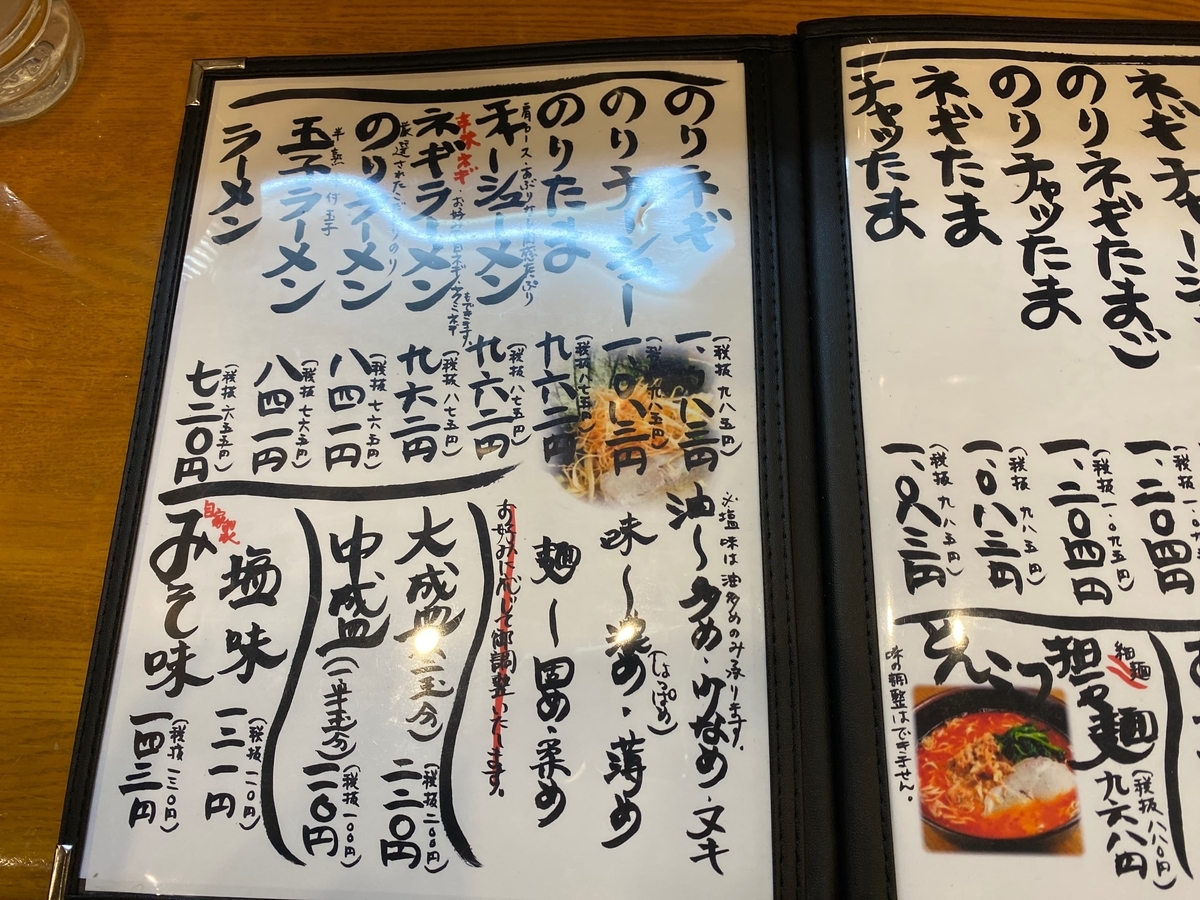 ネギチャーシ
のりネギたまご
のりチャッたま
ネギたま
チャッたま
一、二〇四円
(税抜 一、〇九五円)
一、二〇四円
(税抜 九八五円)
一、〇八三円
(税抜 九八五円)
一、〇八三円
細麺
担々麺
(税抜 八八〇円)
九六八円
とんこつ
味の調整はできません。
のりネギ
(税抜 九八五円)
のりチャーシュー
(税抜 九八五円)
一、〇八三円
のりたま
(税抜 八七五円)
九六二円
肩ロース・あぶり
チャーシューメン
(税抜 八七五円)
九六二円
辛味ネギ・お好みで白ネギ・ヤクミネギもできます。
ネギラーメン
(税抜 八七五円)
九六二円
厳選された
のりラーメン
(税抜 七六五円)
八四一円
半熟 味付玉子
玉子ラーメン
(税抜 七六五円)
八四一円
ラーメン
(税抜 六五五円)
七二〇円
※塩味は油多めのみ承ります。
油〜多め・少なめ・ヌキ
味〜濃め(しょっぱめ)・薄め
麺〜固め・柔め
お好みに応じて御調整いたします。
大盛(二玉分)
(税抜 二〇〇円)
二二〇円
中盛(一半玉分)
(税抜 一〇〇円)
一一〇円
塩味
(税抜 一一〇円)
一二一円
自家製
みそ味
(税抜 一三〇円)
一四三円